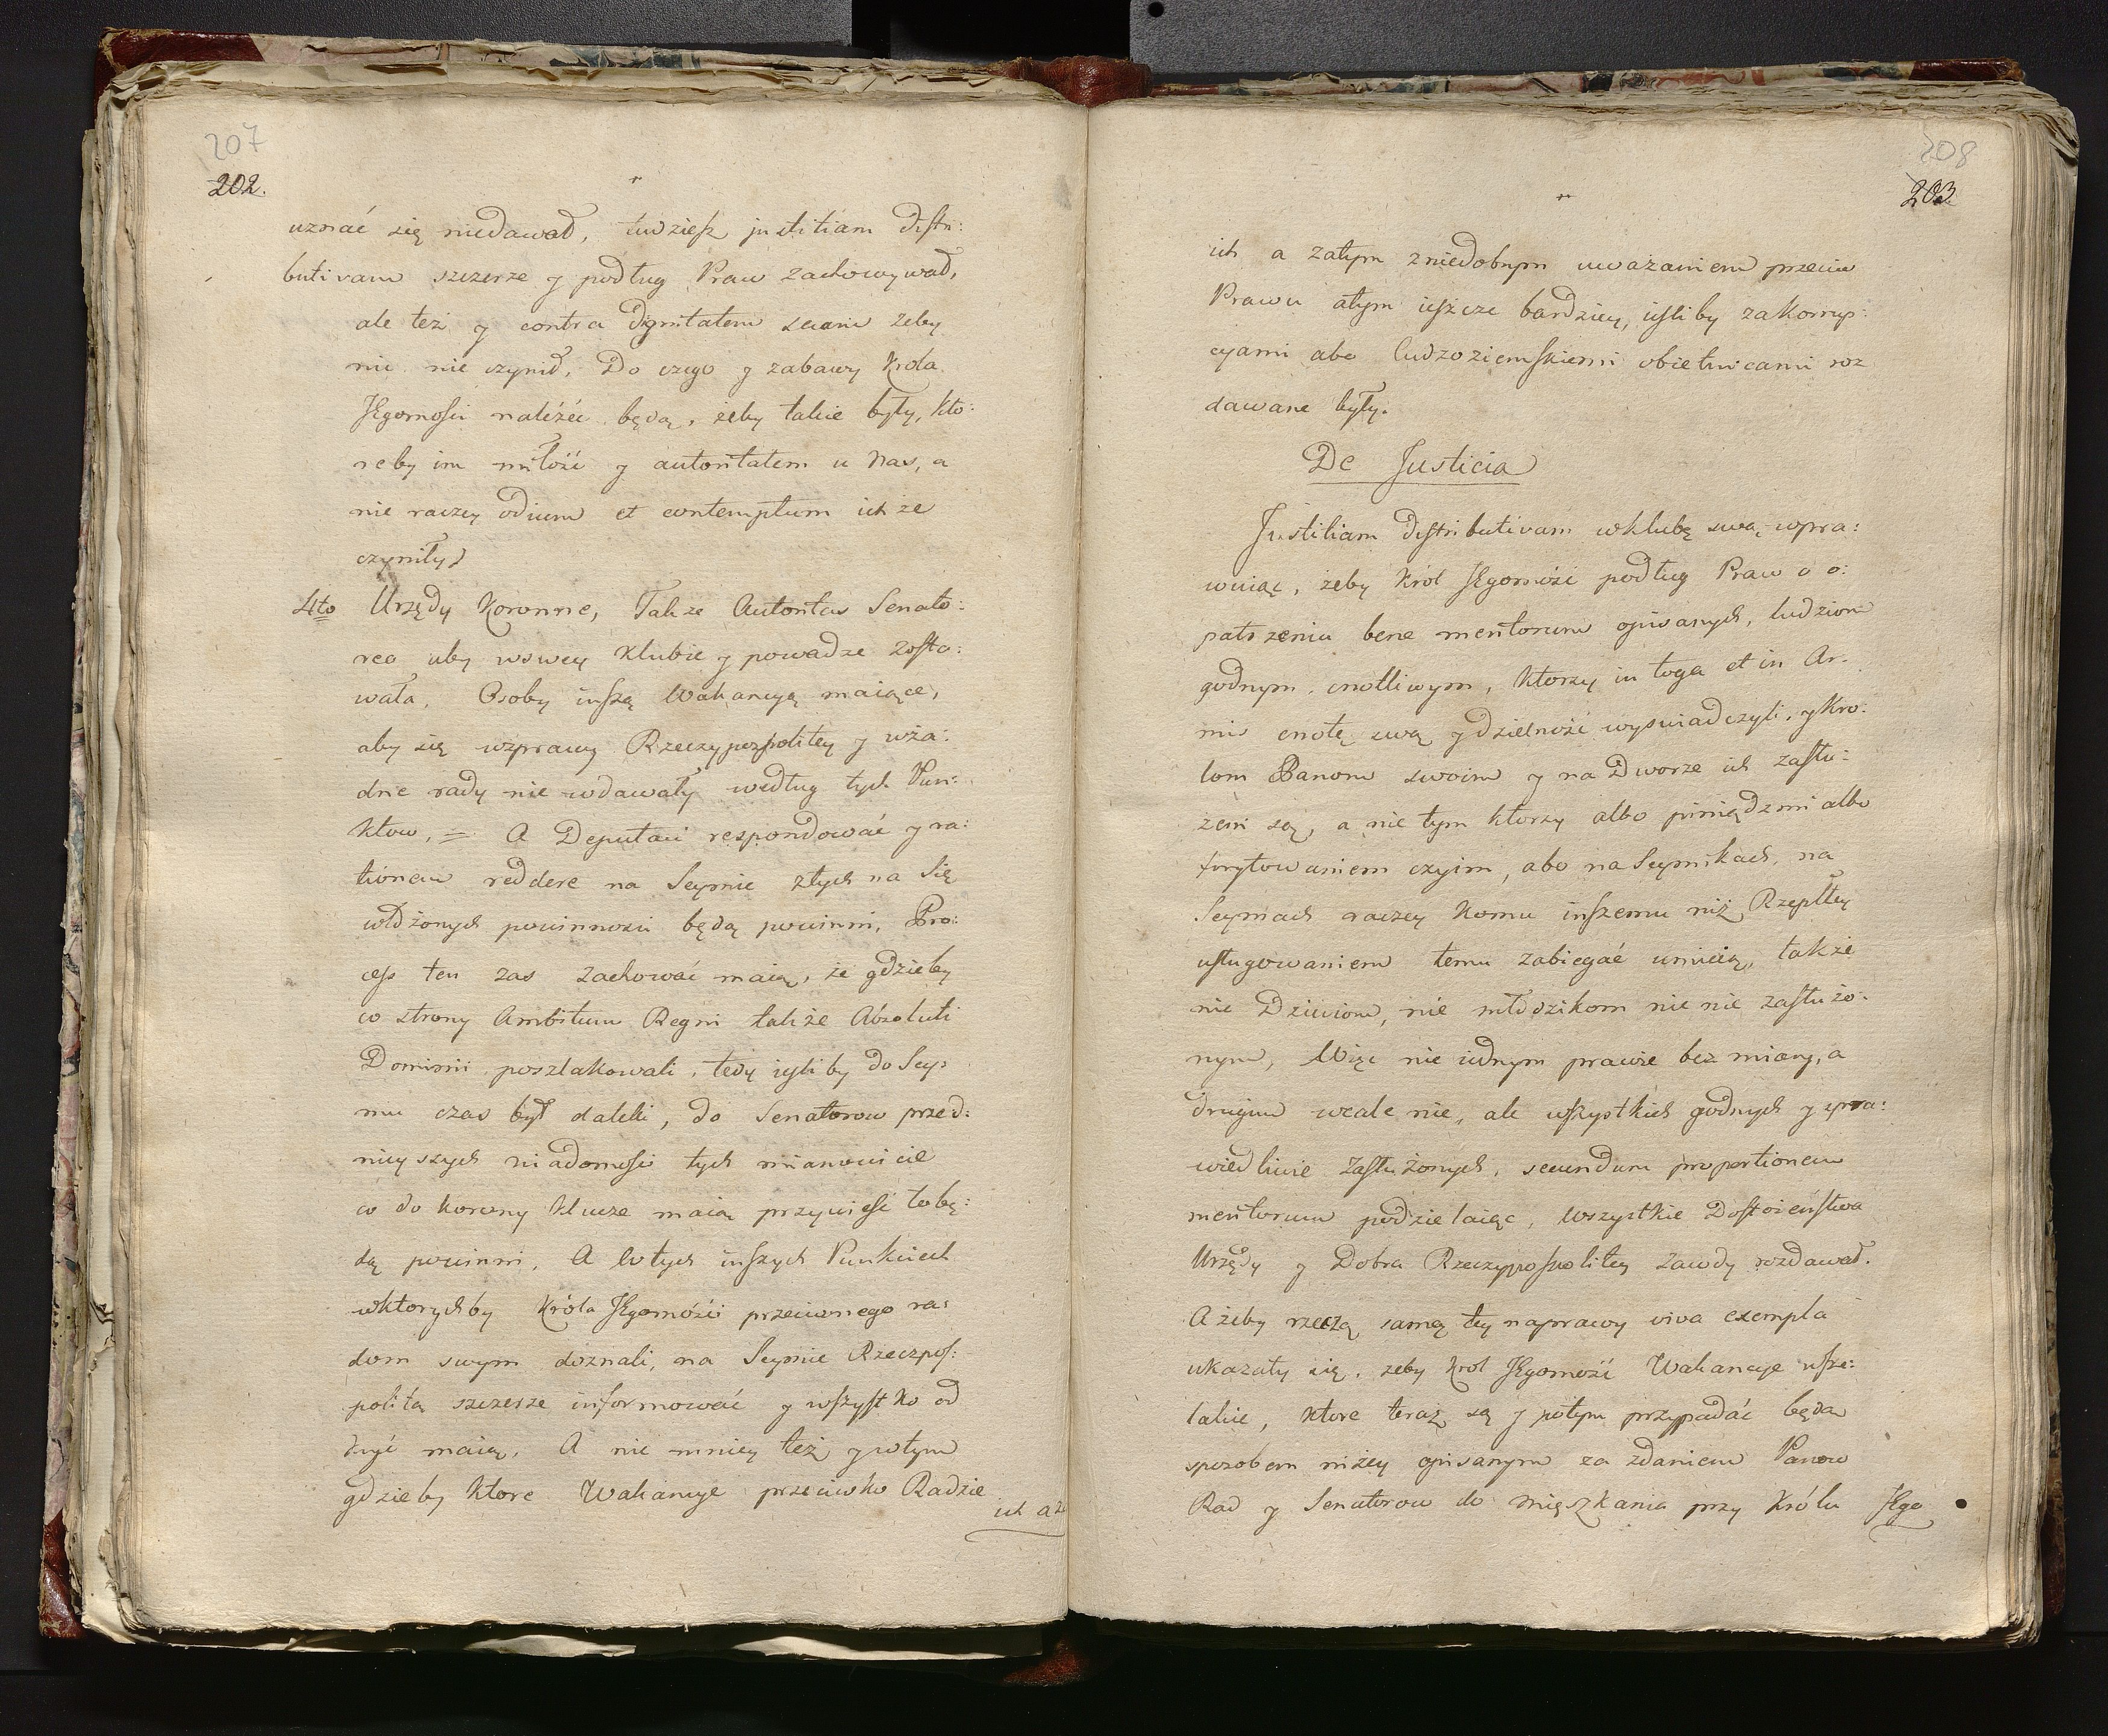 207
202.
uznać się niedawał, tudziesz justitiam distri:
butivam szczerze y podług Praw zachowywał,
ale też y contra dignitatem suam żeby
nic nie czynił, Do czego y zabawy Krola
JEgomosci należéć będą, żeby takie były, kto:
reby im miłość y autoritatem u Nas, a
nie raczey odium et contemptum ichże
czyniły.
4to Urzędy Koronne, Takze Autoritas Senato:
rea aby wswey Klubie y powadze zosta:
wała, Osoby inszą Wakancyą maiące,
aby się wsprawy Rzeczypospolitey y wża:
dne rady nie wdawały według tych Pun:
ktow, = A Deputaci respondować y ra:
tionem reddere na Seymie ztych na się
włożonych powinnosci będą powinni, Pro:
cess ten zas zachować maią, że gdzieby
co strony Ambitum Regni także Absoluti
Dominii poszlakowali, tedy iesliby do Sey:
mu czas był daleki, do Senatorow przed:
nieyszych wiadomosci tych mianowicie
co do korony klucze maią przywieść to bę:
dą powinni, A wtych inszych Punkciech
wktorychby Króla JEgomości przeciwnego ra:
dom swym doznali, na Seymie Rzeczpos:
politą szczerze informować y wszystko od
kryć maią, A nie mniey też y wtym
gdzieby ktore Wakancye przeciwko Radzie
ich a za
208
203.
ich a zatym zniedobrym uważaniem przeciw
Prawu atym ieszcze bardziey, iesliby zakorrup:
cyami abo Cudzoziemskiemi obietnicami roz
dawane były.
De Justicia
Justitiam distributivam wklubę swą wpra:
wuiąc, żeby Król JEgomość podług Praw o o:
patrzeniu bene meritorum opisanych, ludziom
godnym, cnotliwym, ktorzy in toga et in Ar.
mis cnotę swą y dzielność wyswiadczyli, y Kro:
lom Panom swoim y na Dworze ich zasłu:
żeni są, a nie tym ktorzy albo pieniądzmi albo
forytowaniem czyim, abo na Seymikach, na
Seymach raczey komu inszemu niż Rzeptey
usługowaniem temu zabiegać umieią, także
nie Dzieciom, nie młodzikom nic nie zasłużo:
nym, Więc nie iednym prawie bez miary, a
drugim wcale nic, ale wszystkich godnych y spra:
wiedliwie zasłużonych, secundum proportionem
meritorum podzielaiąc, wszystkie Dostoieństwa
Urzędy y Dobra Rzeczypospolitey zawdy rozdawał.
A żeby rzeczą samą tey naprawy viva exempla
ukazały się, zeby Krol JEgomość Wakancye wsze:
lakie, ktore teraz są y potym przypadać będą
sposobem niżey opisanym za zdaniem Panow
Rad y Senatorow do mięszkania przy Królu JEgo